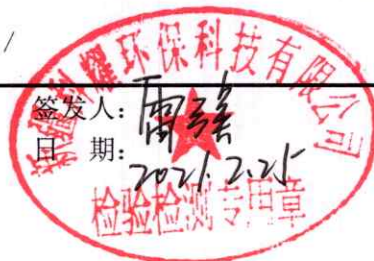 /
新疆科耀环保科技有限公司
签发人：
日 期：2021.2.25
检验检测专用章